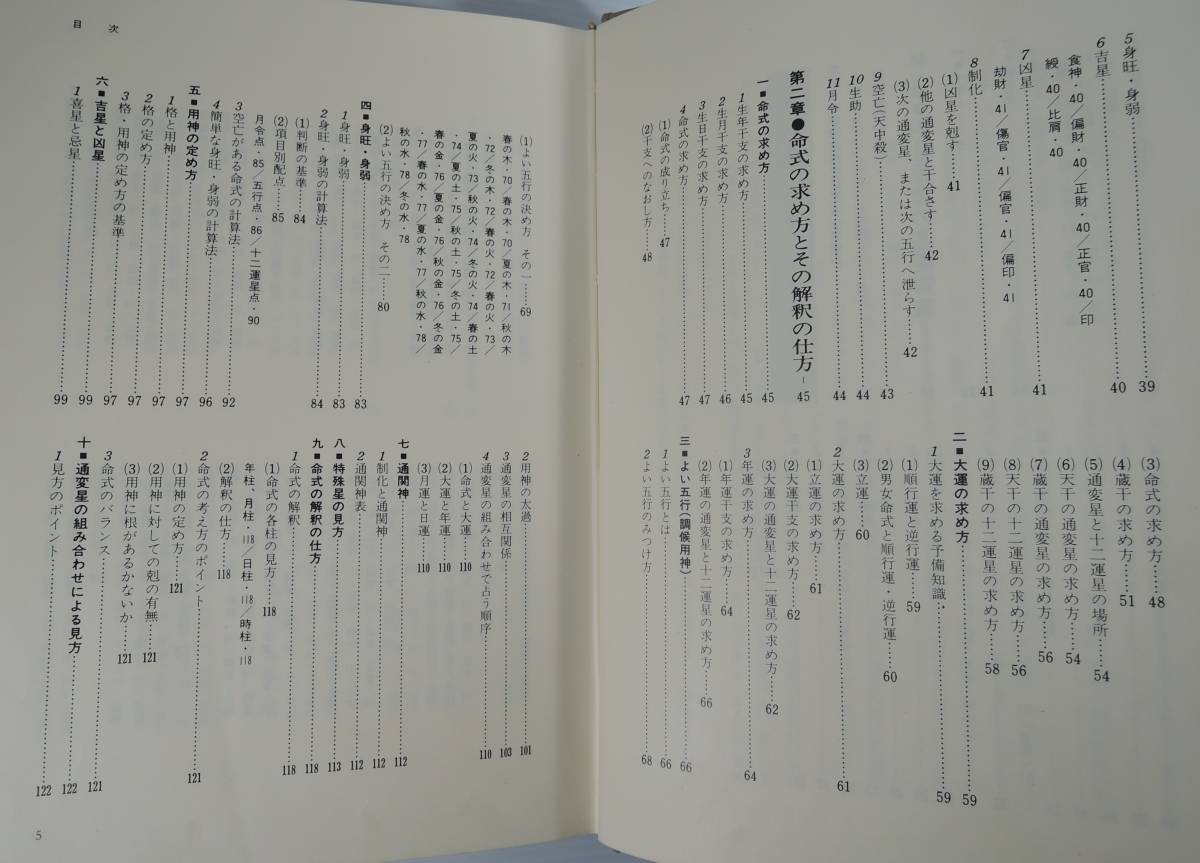 5 身旺・身弱……39
6 吉星……40
食神・40／偏財・40／正財・40／正官・40／印
綬・40／比肩・40
7 凶星……41
劫財・41／傷官・41／偏官・41／偏印・41
8 制化……41
(1) 凶星を剋す……41
(2) 他の通変星と干合さす……42
(3) 次の通変星、または次の五行へ泄らす……42
9 空亡(天中殺)……43
10 生助……44
11 月令……44
第二章●命式の求め方とその解釈の仕方……45
一■命式の求め方……45
1 生年干支の求め方……45
2 生月干支の求め方……46
3 生日干支の求め方……47
4 命式の求め方……47
(1) 命式の成り立ち……47
(2) 干支へのなおし方……48
(3) 命式の求め方……48
(4) 蔵干の求め方……51
(5) 通変星と十二運星の場所……54
(6) 天干の通変星の求め方……54
(7) 蔵干の通変星の求め方……56
(8) 天干の十二運星の求め方……56
(9) 蔵干の十二運星の求め方……58
二■大運の求め方……59
1 大運を求める予備知識……59
(1) 順行運と逆行運……59
(2) 男女命式と順行運・逆行運……60
(3) 立運……60
2 大運の求め方……61
(1) 立運の求め方……61
(2) 大運干支の求め方……62
(3) 大運の通変星と十二運星の求め方……62
3 年運の求め方……64
(1) 年運干支の求め方……64
(2) 年運の通変星と十二運星の求め方……66
三■よい五行(調候用神)……66
1 よい五行とは……66
2 よい五行のみつけ方……68
目次
(1) よい五行の決め方 その一……69
春の木・70／春の木・70／夏の木・71／秋の木
・72／冬の木・72／春の火・72／春の火・73／
夏の火・73／秋の火・74／冬の火・74／春の土
・74／夏の土・75／秋の土・75／冬の土・75／
春の金・76／夏の金・76／秋の金・76／冬の金
・77／春の水・77／夏の水・77／秋の水・78／
秋の水・78／冬の水・78
(2) よい五行の決め方 その二……80
四■身旺・身弱……83
1 身旺・身弱……83
2 身旺・身弱の計算法……84
(1) 判断の基準……84
(2) 項目別配点……85
月令点・85／五行点・86／十二運星点・90
3 空亡がある命式の計算法……92
4 簡単な身旺・身弱の計算法……96
五■用神の定め方……97
1 格と用神……97
2 格の定め方……97
3 格・用神の定め方の基準……97
六■吉星と凶星……99
1 喜星と忌星……99
2 用神の太過……101
3 通変星の相互関係……103
4 通変星の組み合わせで占う順序……110
(1) 命式と大運……110
(2) 大運と年運……110
(3) 月運と日運……110
七■通関神……112
1 制化と通関神……112
2 通関神表……112
八■特殊星の見方……113
九■命式の解釈の仕方……118
1 命式の解釈……118
(1) 命式の各柱の見方……118
年柱、月柱・118／日柱・118／時柱・118
(2) 解釈の仕方……118
2 命式の考え方のポイント……121
(1) 用神の定め方……121
(2) 用神に対しての剋の有無……121
(3) 用神に根があるかないか……121
3 命式のバランス……121
十■通変星の組み合わせによる見方……122
1 見方のポイント……122
5